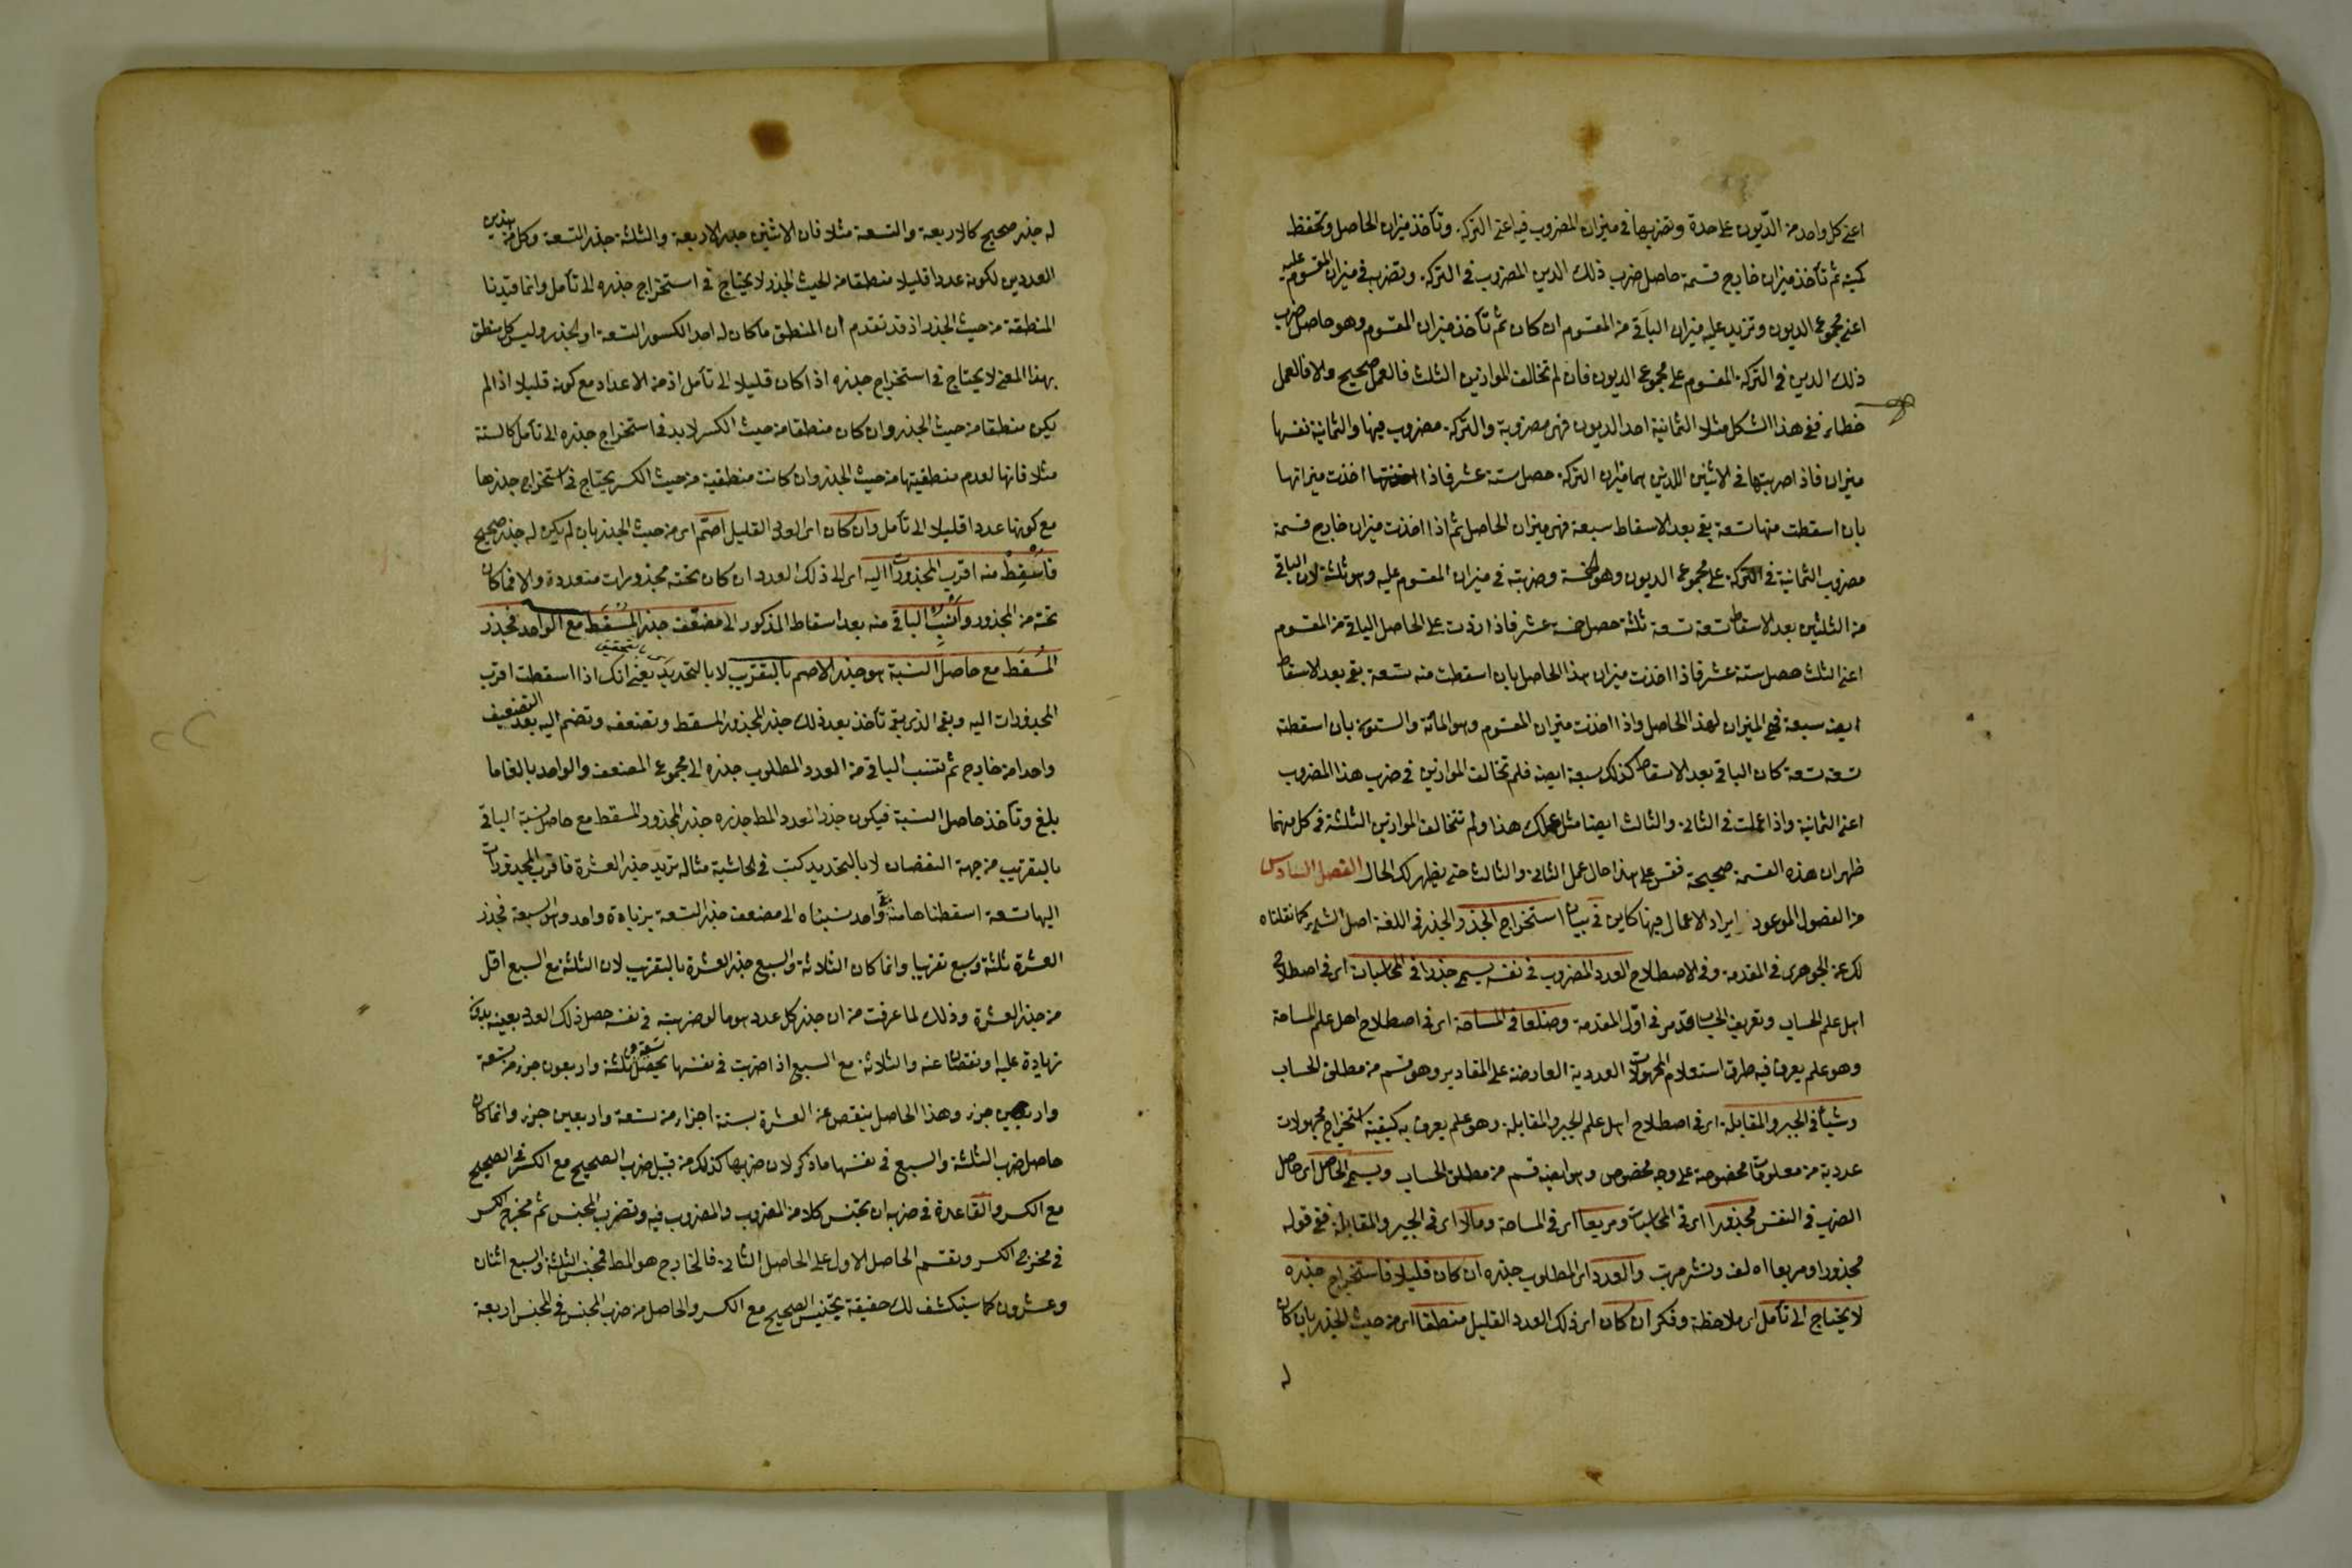 اعنى كل واحد من الديون على حدة وتضربها فى ميزان المضروب فيه اعنى التركة وتأخذ ميزان الحاصل وتحفظ
كميته ثم تأخذ ميزان خارج قسمة حاصل ضرب ذلك الدين المضروب فى التركة وتضرب فى ميزان المقسوم عليه
اعنى مجموع الديون وتزيد عليه ميزان الباقى من المقسوم ان كان ثم تأخذ ميزان المقسوم وهو حاصل ضرب
ذلك الدين فى التركة المقسوم على مجموع الديون فان لم تخالف الموازين الثلث فالعمل صحيح والا فالعمل
خطاء ففى هذا الشكل مثلا الثمانية احد الديون فهى مضروبة والتركة مضروب فيها والثمانية نفسها
ميزان فاذا ضربتها فى الاثنين اللذين هما ميزان التركة حصل ستة عشر فاذا اخذت ميزانها
بان اسقطت منها تسعة بقى بعد الاسقاط سبعة فهى ميزان الحاصل ثم اذا اخذت ميزان خارج قسمة
مضروب الثمانية فى التركة على مجموع الديون وهو الخمسة وضربته فى ميزان المقسوم عليه وهو ثلثة لان الباقى
من الثلثين بعد الاسقاط تسعة تسعة ثلثة حصل خمسة عشر فاذا زدت على الحاصل الباقى من المقسوم
اعنى الثلث حصل ستة عشر فاذا اخذت ميزان هذا الحاصل بان اسقطت منه تسعة بقى بعد الاسقاط
ايضا سبعة فهى الميزان لهذا الحاصل واذا اخذت ميزان المقسوم وهو المائة والستون بان اسقطته
تسعة تسعة كان الباقى بعد الاسقاط كذلك سبعة ايضا فلم تخالف الموازين فى ضرب هذا المضروب
اعنى الثمانية واذا عملت فى الثانى والثالث ايضا مثل عملك هذا ولم تتخالف الموازين الثلثة فى كل منهما
ظهر ان هذه القسمة صحيحة فقس على هذا حال عمل الثانى والثالث حتى يظهر لك الحال الفصل السادس
من الفصول الموعود ايراد الاعمال فيها كاين فى بيان استخراج الجذر والجذر فى اللغة اصل الشئ كما نقلناه
لك عن الجوهرى فى المقدمة وفى الاصطلاح العدد المضروب فى نفسه يسمى جذرا فى المحاسبات اى فى اصطلاح
اهل علم الحساب وتعريف الحساب قد مر فى اول المقدمة وضلعا فى المساحة اى فى اصطلاح اهل علم المساحة
وهو علم يعرف فيه طرق استعلام المجهولات العددية العارضة على المقادير وهو قسم من مطلق الحساب
وشيئا فى الجبر والمقابلة اى فى اصطلاح اهل علم الجبر والمقابلة وهو علم يعرف به كيفية استخراج مجهولات
عددية من معلومات مخصوصة على وجه مخصوص وهو ايضا قسم من مطلق الحساب ويسمى الحاصل اى حاصل
الضرب فى النفس مجذورا اى فى المحاسبات ومربعا اى فى المساحة ومالا اى فى الجبر والمقابلة ففى قوله
مجذورا ومربعا اه لف ونشر مرتب والعدد اى المطلوب جذره ان كان قليلا فاستخراج جذره
لا يحتاج الى تأمل اى ملاحظة وفكر ان كان اى ذلك العدد القليل منطقا اى من حيث الجذر بان كان
له
له جذر صحيح كالاربعة والتسعة مثلا فان الاثنين جذر الاربعة والثلثة جذر التسعة وكل من هذين
العددين لكونه عددا قليلا منطقا من الحيث الجذر لا يحتاج فى استخراج جذره الى تأمل وانما قيدنا
المنطقة من حيث الجذر اذ قد تقدم ان المنطق ما كان له احد الكسور التسعة او الجذر وليس كل منطق
بهذا المعنى لا يحتاج فى استخراج جذره اذا كان قليلا الى تأمل اذ من الاعداد مع كونه قليلا اذا لم
يكن منطقا من حيث الجذر وان كان منطقا من حيث الكسر لا بد فى استخراج جذره الى تأمل كالستة
مثلا فانها لعدم منطقيتها من حيث الجذر وان كانت منطقية من حيث الكسر يحتاج فى استخراج جذرها
مع كونها عددا قليلا الى تأمل وان كان اى العدد القليل اصم اى من حيث الجذر بان لم يكن له جذر صحيح
فاسقط منه اقرب المجذورات اليه اى الى ذلك العدد ان كان تحته مجذورات متعددة والا فما كان
تحته من المجذور وانسب الباقى منه بعد اسقاط المذكور الى مضعف جذر المسقط مع الواحد فجذر
المسقط مع حاصل النسبة هو جذر الاصم بالتقريب لا بالتحديد بالتحقيق يعنى انك اذا اسقطت اقرب
المجذورات اليه وبقى الذى بقى تأخذ بعد ذلك جذر المجذور المسقط وتضعفه وتضم اليه بعد التضعيف
واحدا من خارج ثم تنسب الباقى من العدد المطلوب جذره الى مجموع المضعف والواحد بالغا ما
بلغ وتأخذ حاصل النسبة فيكون جذر العدد المط جذره جذر المجذور المسقط مع حاصل نسبة الباقى
بالتقريب من جهة النقصان لا بالتحديد كتب فى الحاشية مثاله نريد جذر العشرة فاقرب المجذورات
اليها تسعة اسقطناها منه بقى واحد نسبناه الى مضعف جذر التسعة بزيادة واحد وهو السبعة فجذر
العشرة ثلثة وسبع تقريبا وانما كان الثلاثة والسبع جذر العشرة بالتقريب لان الثلثة مع السبع اقل
من جذر العشرة وذلك لما عرفت من ان جذر كل عدد هو ما لو ضربته فى نفسه حصل ذلك العدد بعينه بدون
زيادة عليه او نقصان عنه والثلاثة مع السبع اذا ضربت فى نفسها يحصل تسعة و ثلثة واربعون جزء من تسعة
واربعين جزء وهذا الحاصل ينقص عن العشرة بستة اجزاء من تسعة واربعين جزء وانما كان
حاصل ضرب الثلثة والسبع فى نفسها ما ذكر لان ضربها كذلك من قبيل ضرب الصحيح مع الكسر فى الصحيح
مع الكسر والقاعدة فى ضربه ان تجنس كلا من المضروب والمضروب فيه وتضرب المجنس ثم مخرج الكسر
فى مخرج الكسر وتقسم الحاصل الاول على الحاصل الثانى فالخارج هو المط فمجنس الثلثة والسبع اثنان
وعشرون كما سينكشف لك حقيقة تجنيس الصحيح مع الكسر والحاصل من ضرب المجنس فى المجنس اربعة